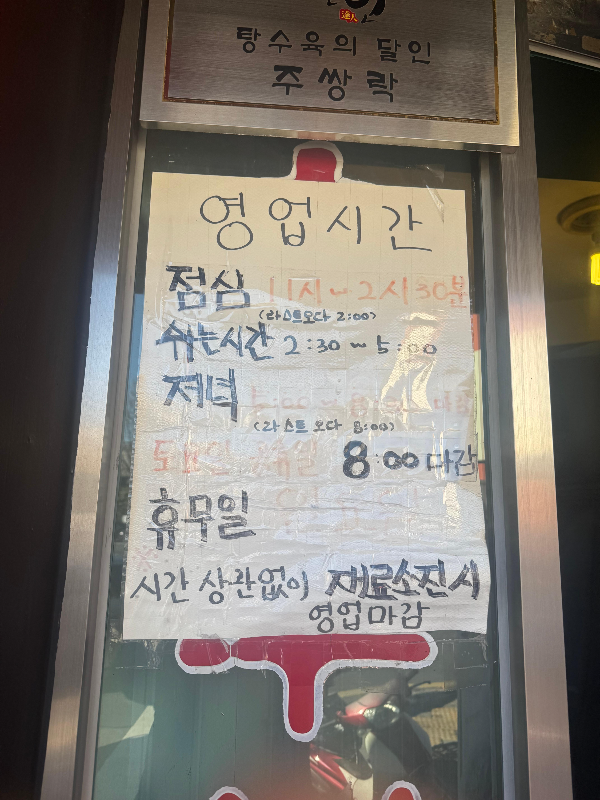 탕수육의 달인
주쌍락
영업시간
점심 11시~2시30분
(라스트오다 2:00)
쉬는시간 2:30~5:00
저녁
(라스트 오다 8:00)
8:00 마감
휴무일
시간 상관없이 재료소진시
영업마감